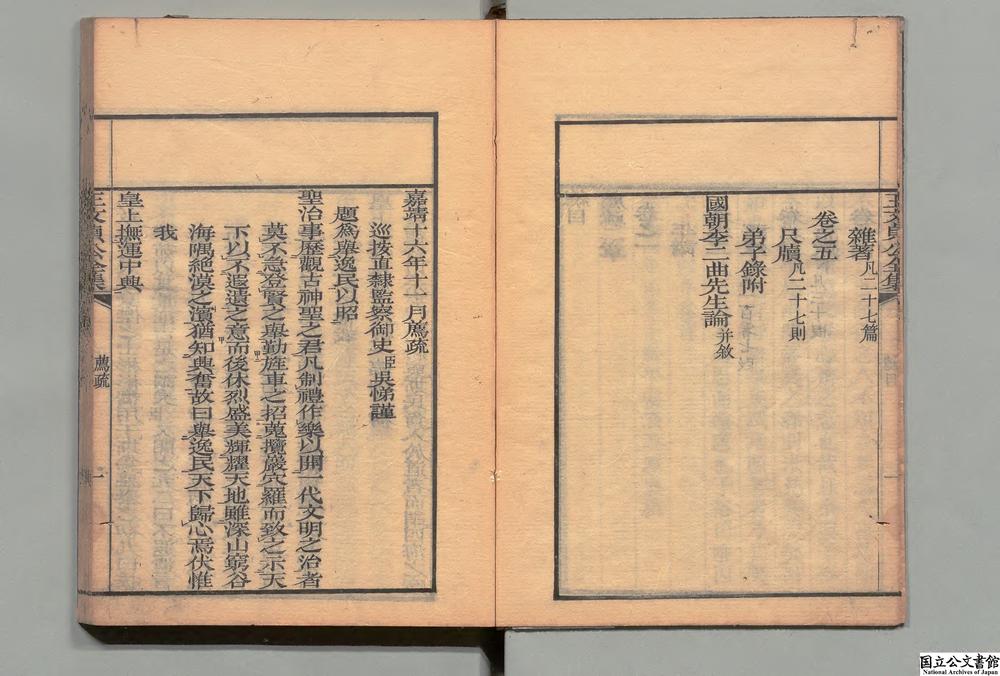 雜著凡二十七篇
卷之五
尺牘凡二十七則
弟子錄附
國朝李二曲先生論并敘
王文貞公全集
一
嘉靖十六年十一月薦疏
巡按直隸監察御史臣吳悌謹
題爲舉逸民以昭
聖治事歷觀古神聖之君凡制禮作樂以開一代文明之治者
莫不急登賢之舉勤旌車之招蒐攬巖穴羅而致之示天
下以不遐遺之意而後休烈盛美輝耀天地雖深山窮谷
海隅絕漠之濱猶知興奮故曰舉逸民天下歸心焉伏惟
我
皇上撫運中興
王文貞公全集
薦疏
一
国立公文書館
National Archives of Japan